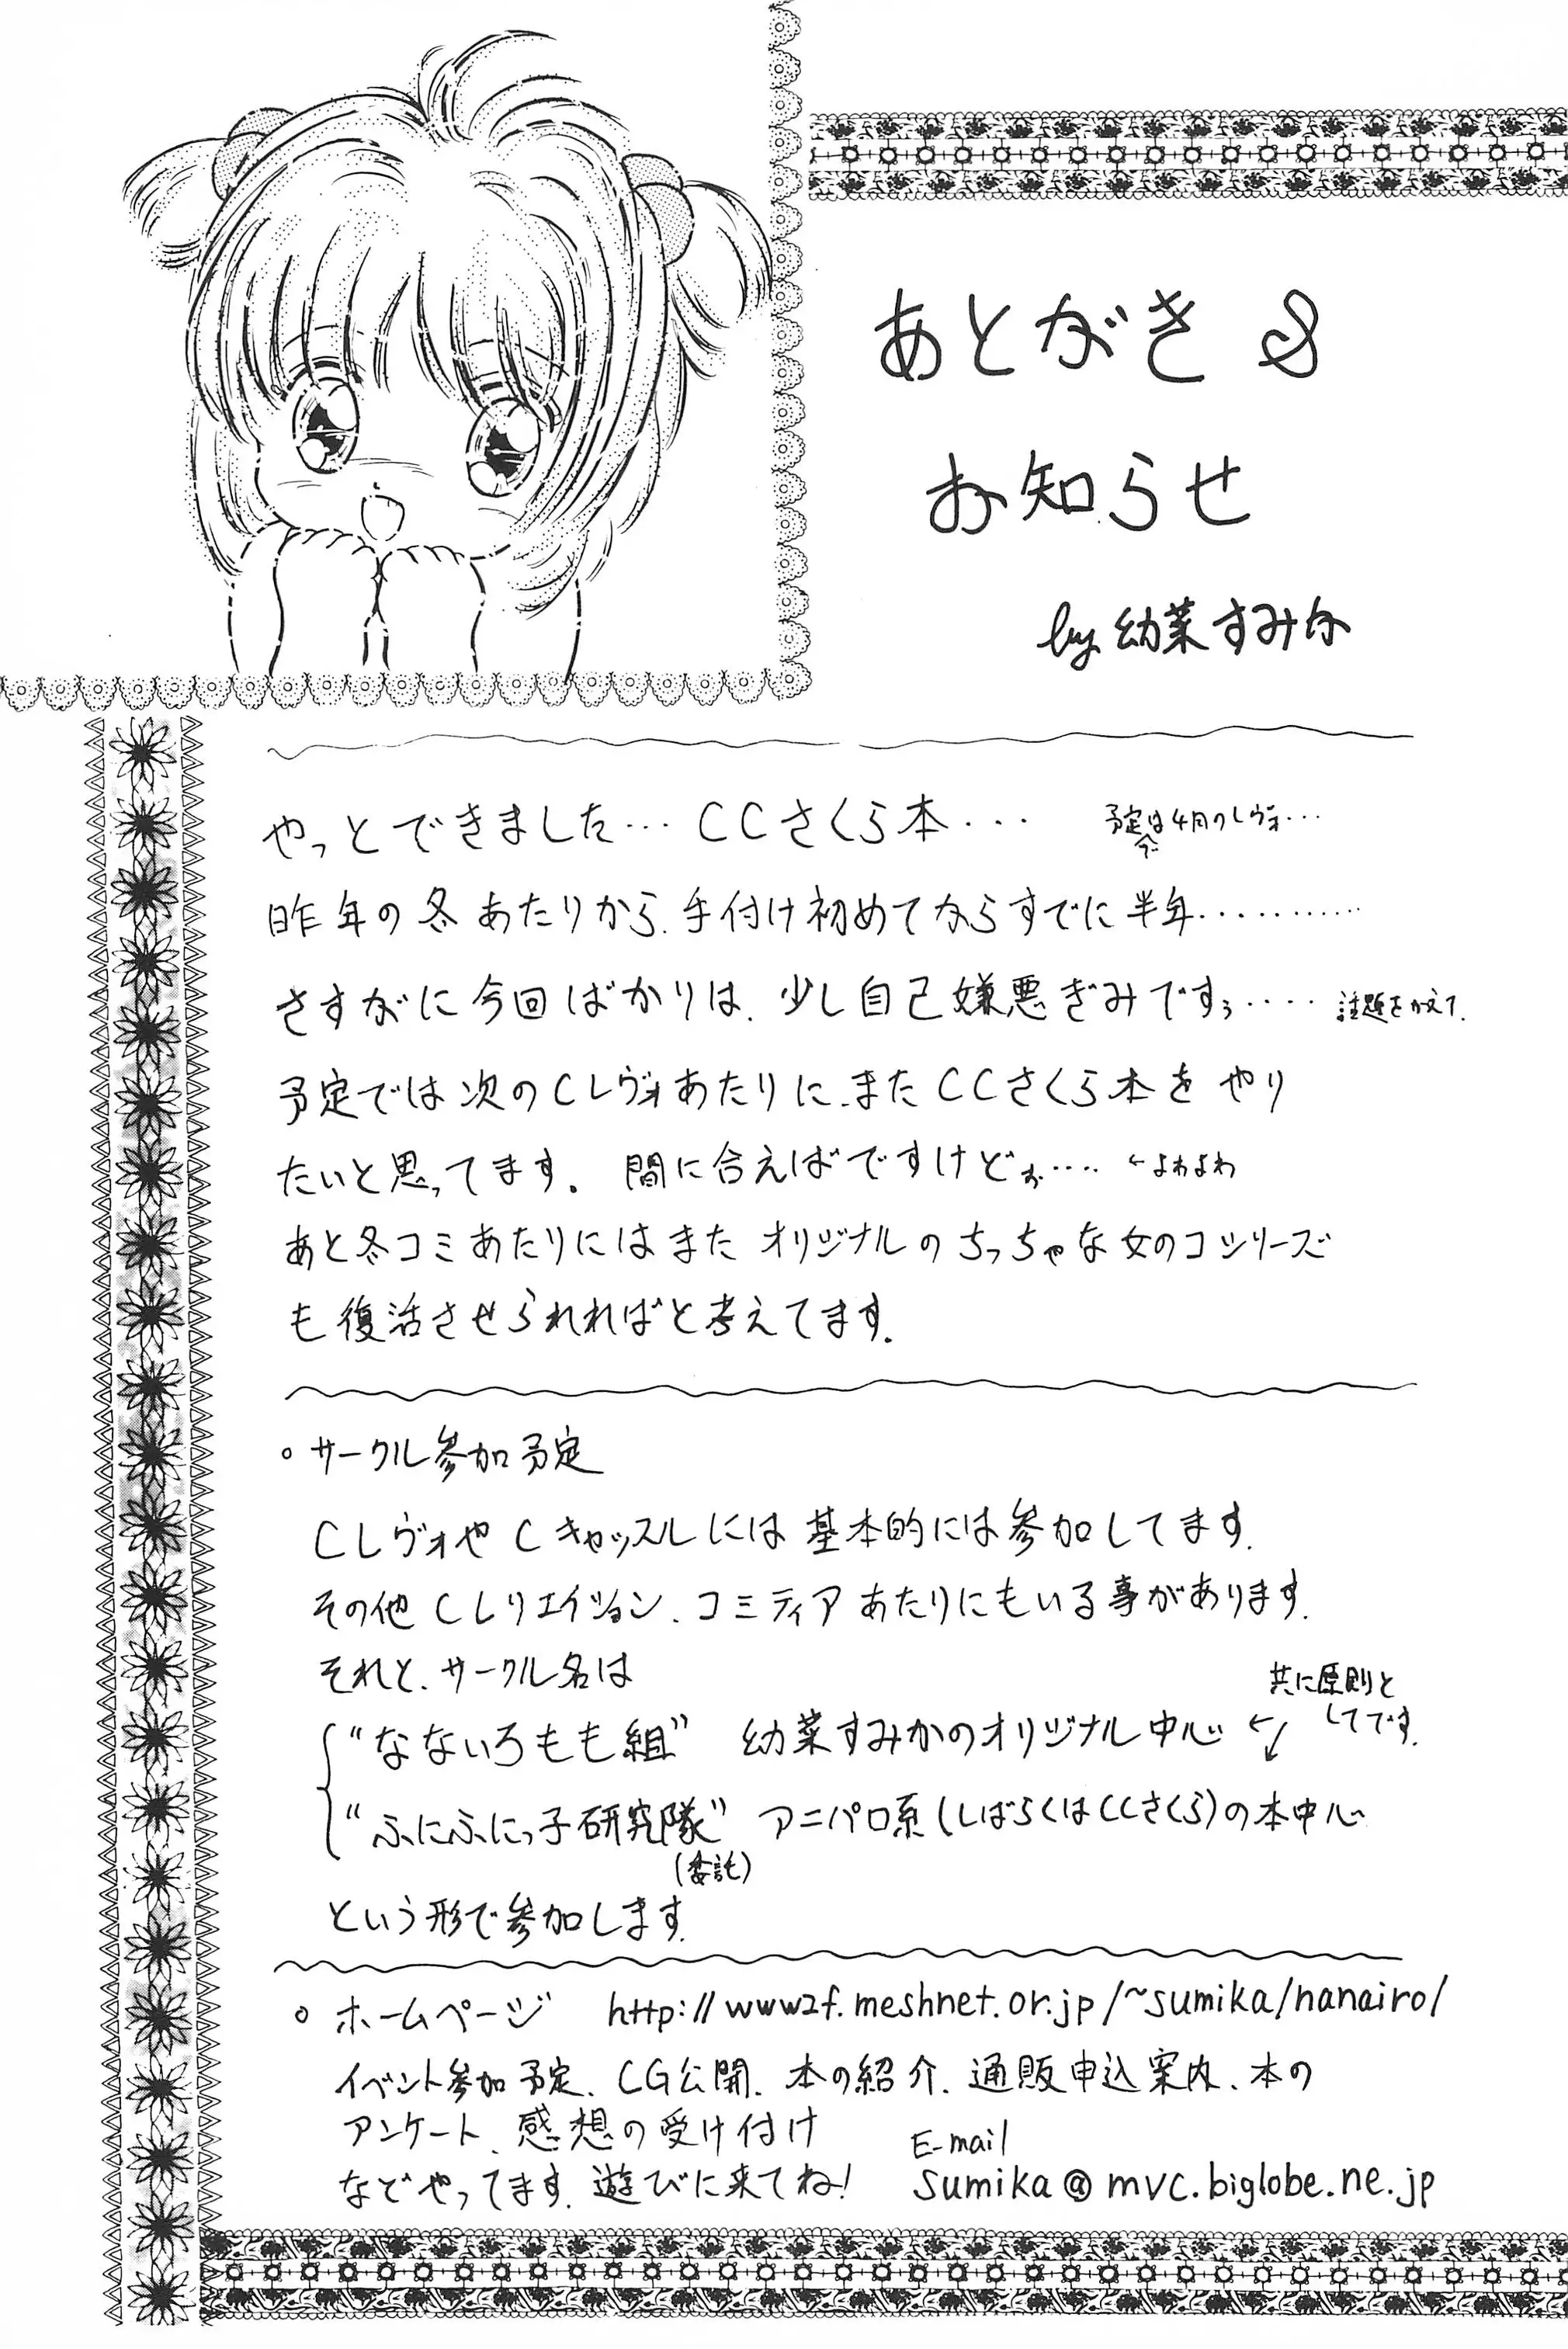 あとがき &
お知らせ
by 幼菜すみか
やっとできました… CCさくら本・・・ 予定では4月のレヴォ・・・
昨年の冬あたりから、手付け初めてからすでに半年・・・・・・・・・・・
さすがに今回ばかりは、少し自己嫌悪ぎみですぅ・・・・ 話題をかえて、
予定では次のCレヴォあたりに、またCCさくら本をやり
たいと思ってます。間に合えばですけどぉ・・・・ ←よわよわ
あと冬コミあたりにはまたオリジナルのちっちゃな女のコシリーズ
も復活させられればと考えてます。
○ サークル参加予定
CレヴォやCキャッスルには基本的には参加してます。
その他Cレリエイション、コミティアあたりにもいる事があります。
それと、サークル名は
共に原則と
してです。
“なないろもも組” 幼菜すみかのオリジナル中心 ←↙
“ふにふにっ子研究隊” アニパロ系(しばらくはCCさくら)の本中心
(委託)
という形で参加します。
○ ホームページ http://www2f.meshnet.or.jp/~sumika/nanairo/
イベント参加予定、CG公開、本の紹介、通販申込案内、本の
アンケート、感想の受け付け
などやってます。遊びに来てね!
E-mail
sumika@mvc.biglobe.ne.jp